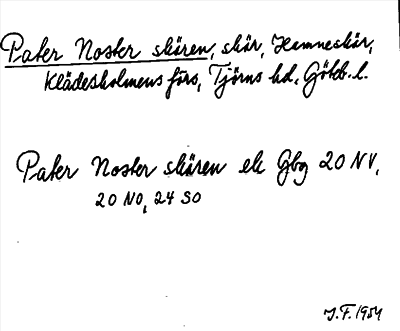 Pater Noster skären, skär, Hamneskär,
Klädesholmens förs, Tjörns hd, Göteb. l.
Pater Noster skären ek Gbg 20 NV,
20 NO, 24 SO
J.F. 1954